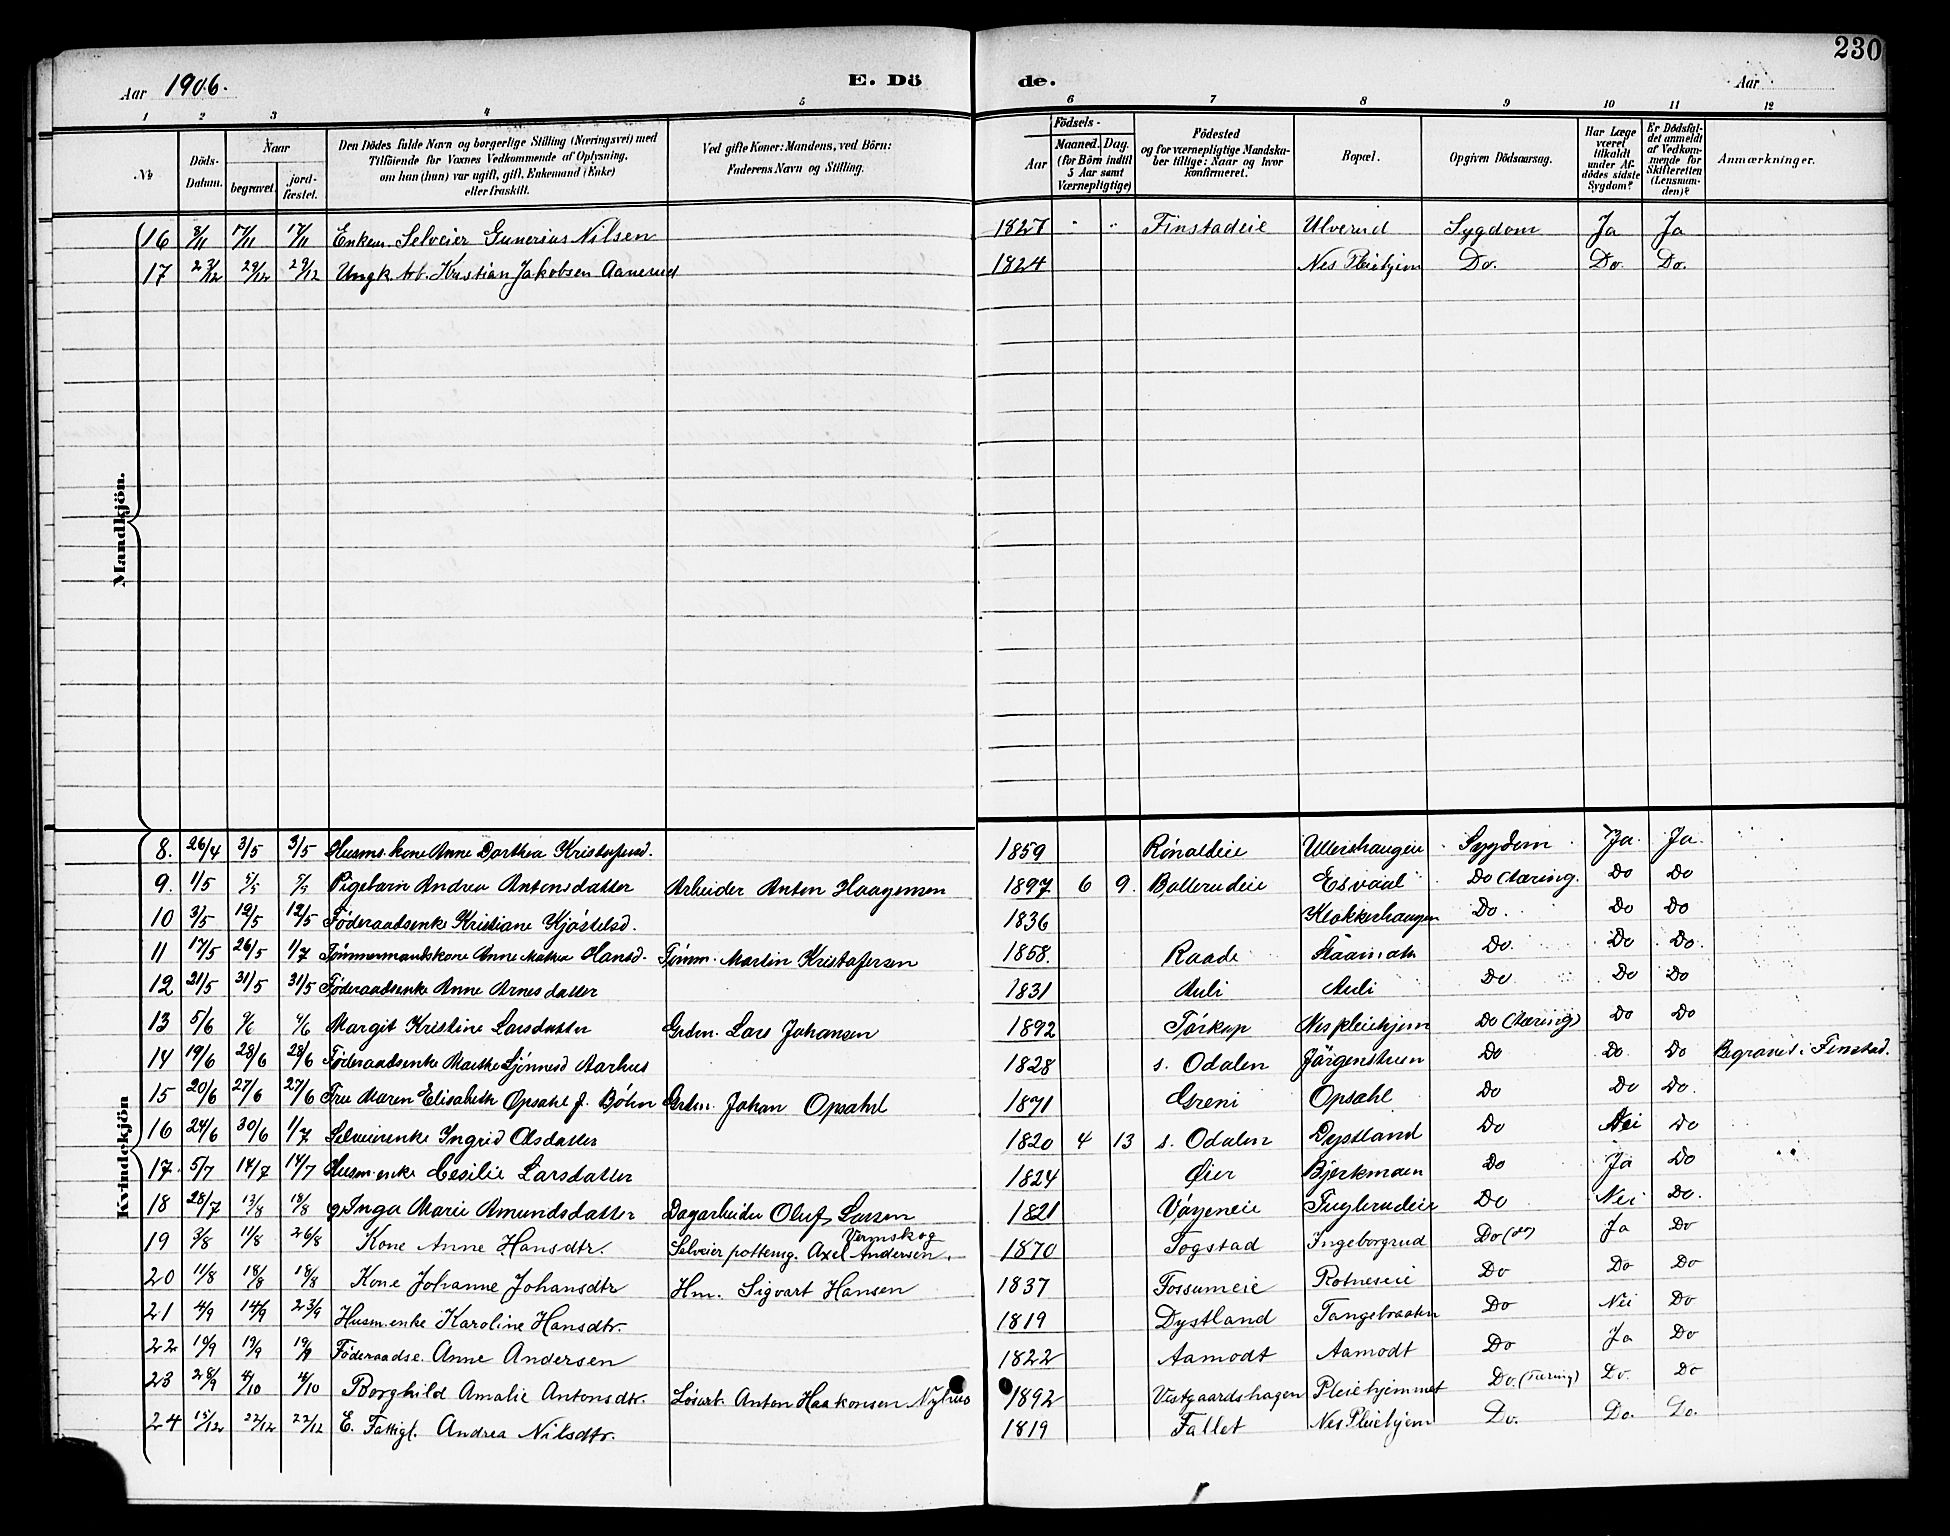 230
Aar 1906. E. Dö de. Aar
1 2 3 4 5 6 7 8 9 10 11 12
No
Döds-Datum.
Naar
begravet.
jord-fæstet.
Den Dödes fulde Navn og borgerlige Stilling (Næringsvei) med
Tilföiende for Voxnes Vedkommende af Oplysning,
om han (hun) var ugift, gift, Enkemand (Enke)
eller fraskilt.
Ved gifte Koner: Mandens, ved Börn:
Faderens Navn og Stilling.
Födsels-
Aar
Maaned. Dag.
(for Börn indtil
5 Aar samt
Værnepligtige)
Födested
og for værnepligtige Mandska-
ber tillige: Naar og hvor
konfirmeret.
Bopæl.
Opgiven Dödsaarsag.
Har Læge
været
tilkaldt
under Af-
dödes sidste
Sygdom?
Er Dödsfal-
det anmeldt
af Vedkom-
mende for
Skifteretten
(Lensman-
den)?
Anmærkninger.
Mandkjön.
16 3/11 17/11 17/11 Enkem. Selveier Gunerius Nilsen 1827 " " Finstadeie Ulverud Sygdom Ja Ja
17 23/12 29/12 29/12 Ungk. arb. Kristian Jakobsen Aanerud 1824 Nes Pleiehjem Do. Do. Do.
Kvindekjön
8. 26/4 3/5 3/5 Husms. kone Anne Dorthea Kristofersd. 1859 Rønaldeie Sygdom Ja. Ja.
9. 1/5 5/5 5/5 Pigebarn Andrea Antonsdatter Arbeider Anton Haagensen 1897 6 9. Ballerudeie Esvaal Do (Tæring. Do Do
10 3/5 12/5 12/5 Føderaadsenke Kristiane Kjøstelsd. 1836 Klokkerhaugen Do. Do Do
11 17/5 26/5 1/7 Tømmermandskone Anne Mathea Hansd. Tømm. Martin Kristofersen 1858. Raade Do. Do Do.
12 21/5 31/5 31/5 Føderaadsenke Anne Arnesdatter 1831 Auli Auli Do Do Do
13 5/6 Margit Kristine Larsdatter Grdm. Lars Johansen 1892 Tørkop Nes pleiehjem Do (Tæring) Do Do
14 19/6 28/6 28/6 Føderaadsenke Marthe Sjønnesd Aarhus 1828 s. Odalen Jørgenstuen Do Do. Do Begravet i Finstad.
15 20/6 27/6 27/6 Frue Maren Elisabeth Opsahl f. Bøhn Grdm. Johan Opsahl 1871 Greni Opsahl Do Do Do.
16 24/6 30/6 1/7 Selveierenke Ingrid Olsdatter 1820 4 13 s. Odalen Dystland Do Nei Do
17. 5/7 14/7 14/7 Husm. enke Cesilie Larsdatter 1824 Øier Bjerkmoen Do Ja Do
18 28/7 13/8 18/8 g. Inga Marie Amundsdatter Dagarbeider Oluf Larsen 1821 Vøyeneie Fuglerudeie Do Nei Do.
19 3/8 11/8 26/8 Kone Anne Hansdtr. Selveier pottemg. Axel Andersen Vermskog 1870 Togstad Ingeborgrud Do Ja Do
20 11/8 18/8 18/8 Kone Johanne Johansdtr Hm. Sigvart Hansen 1837 Fossumeie Rotneseie Do Do Do
21 4/9 14/9 23/9 Husm. enke Karoline Hansdtr. 1819 Dystland Tangebraaten Do Nei Do
22 10/9 19/9 19/9 Føderaadse. Anne Andersen 1822 Aamodt Aamodt Do Ja Do
23 28/9 4/10 Borghild Amalie Antonsdtr. Løsarb. Anton Haakonsen Nyhus 1892 Vestgaardshagen Pleiehjemmet Do. (Tæring) Do. Do
24 15/12 22/12 22/12 E. Fattigl. Andrea Nilsdtr. 1819 Fallet Nes Pleiehjem Do. Do. Do.